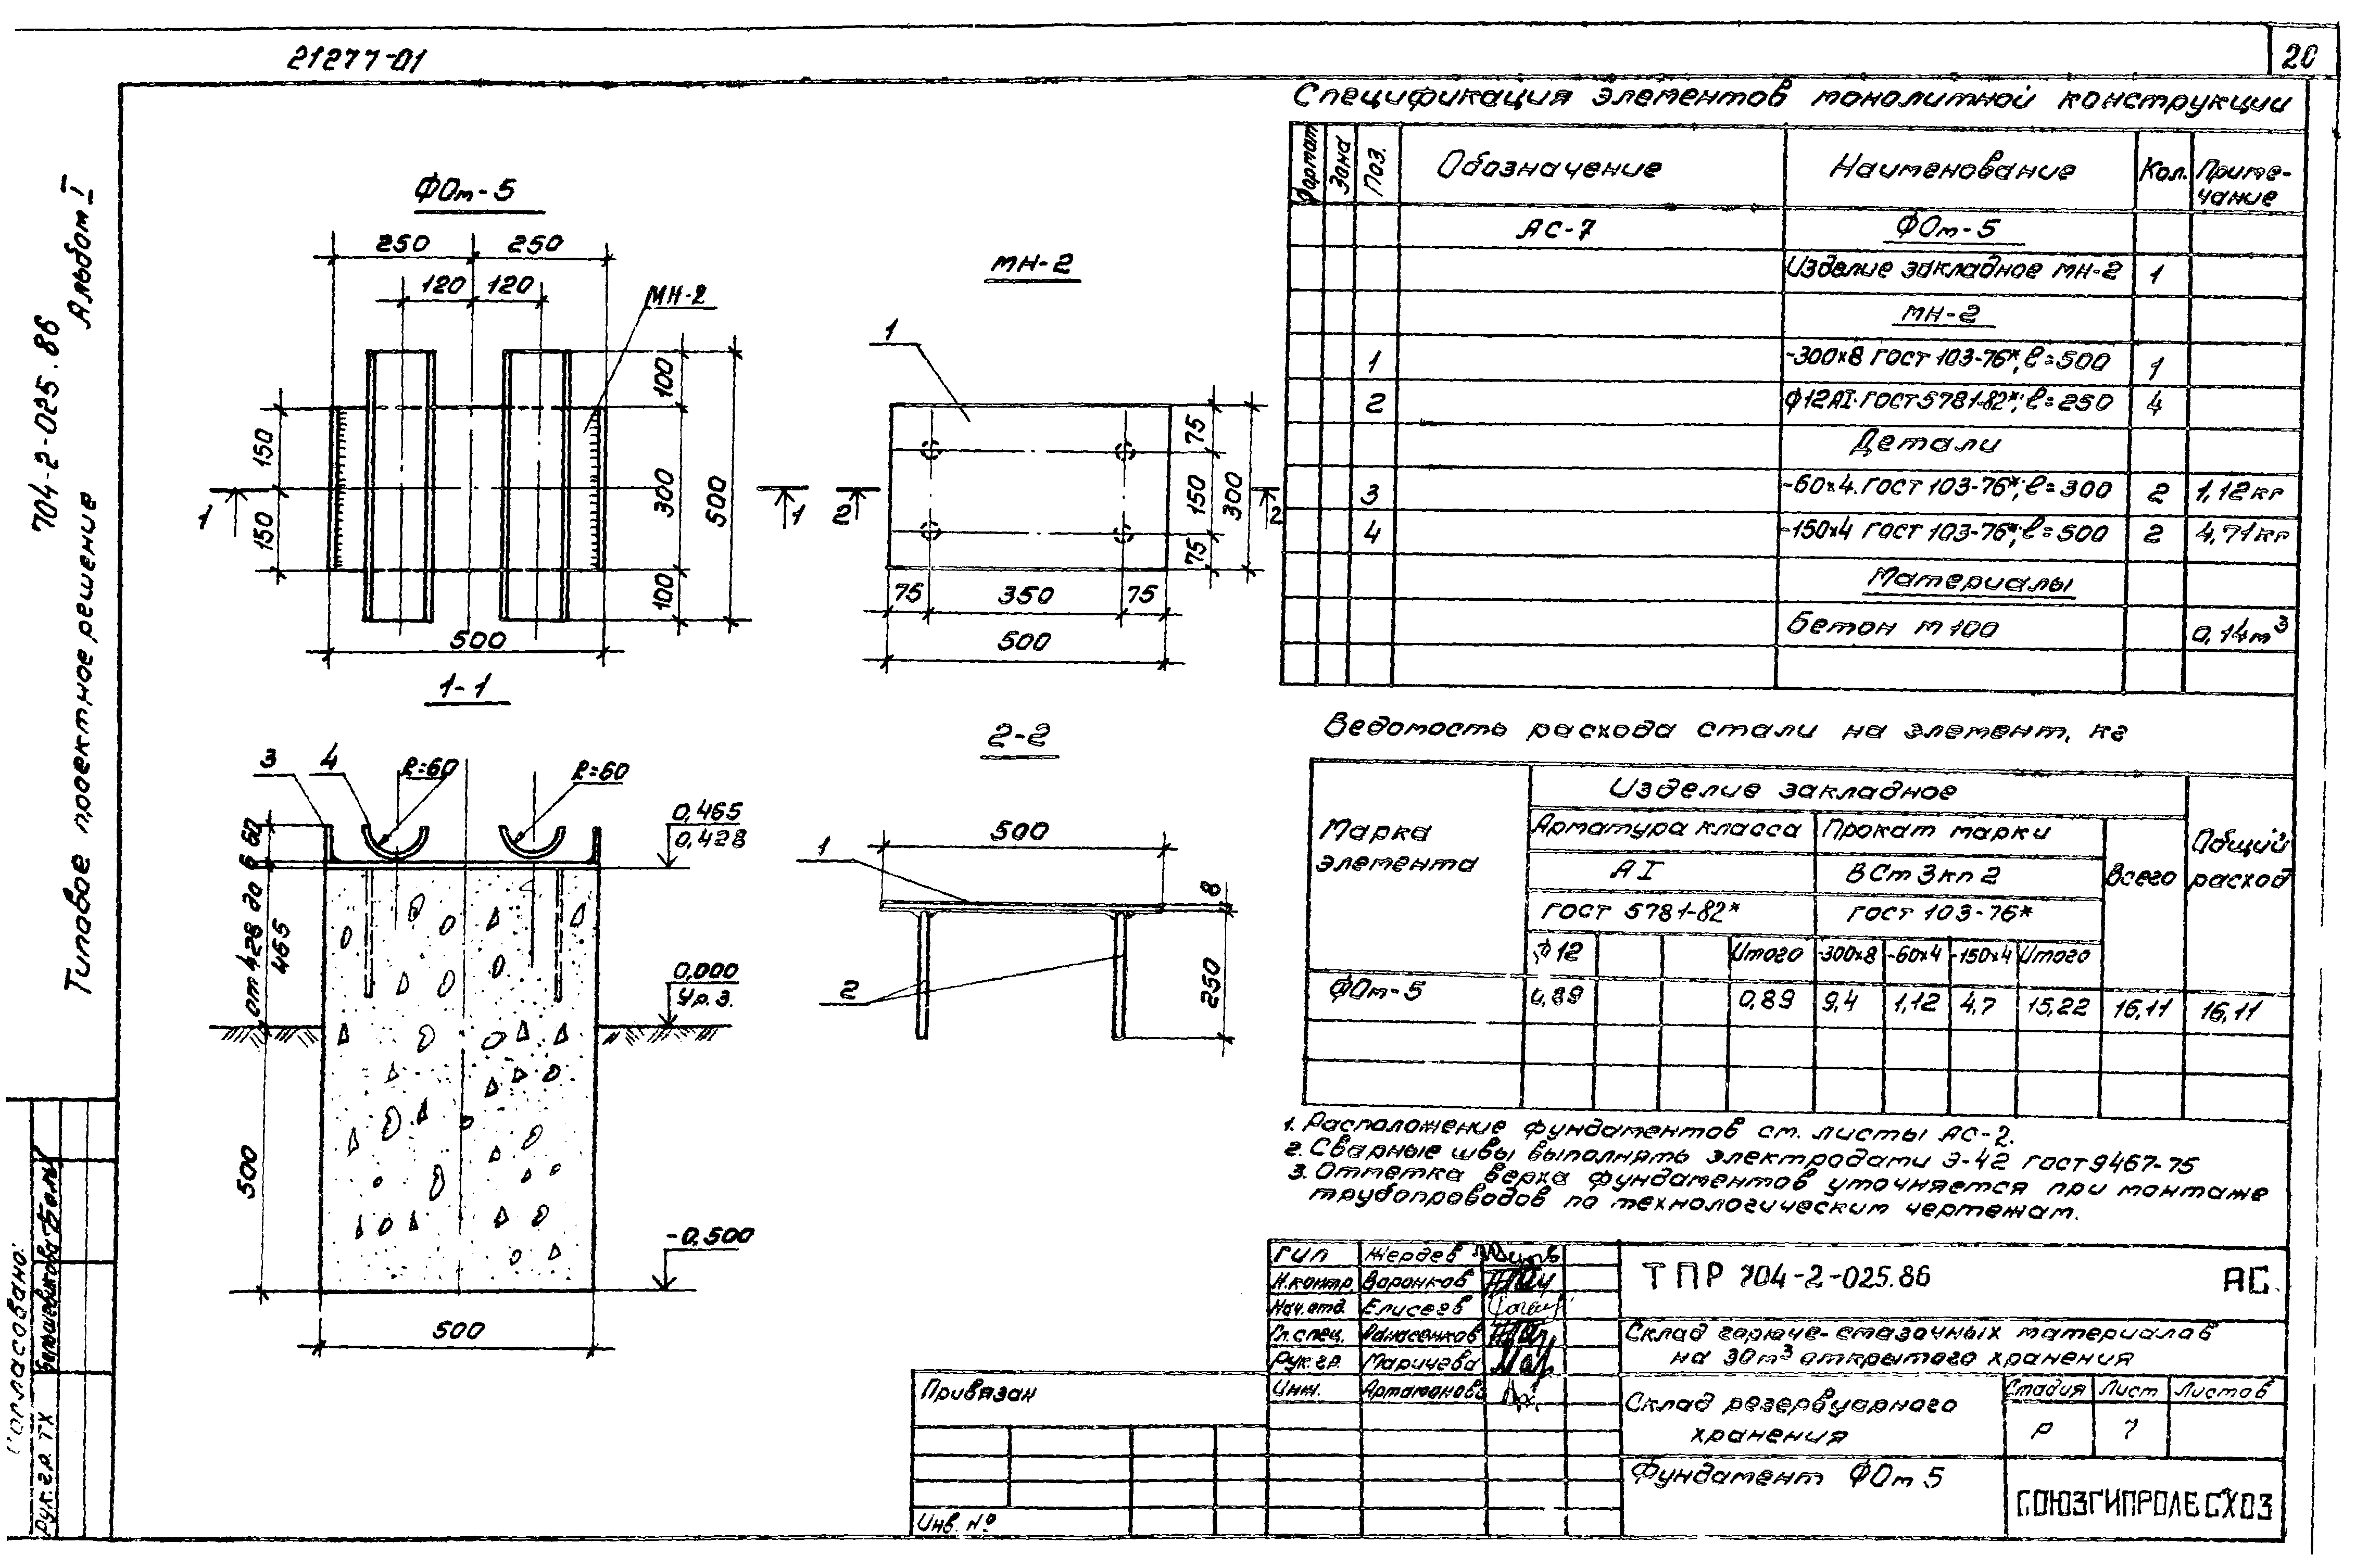 21277-01
20
704-2-025.86
Альбом I
Типовое проектное решение
Согласовано:
Рук. гр. ТХ
ФОм-5
250 250
120 120
МН-2
100
300
500
100
150
150
1 1
500
МН-2
1
75
150
300
75
2 2
75 350 75
500
1-1
3 4 R=60 R=60
0,465
0,428
60
от 428 до
465
0,000
Ур.з.
500
-0,500
500
2-2
500
1
8
2
250
Спецификация элементов монолитной конструкции
Формат Зона Поз. Обозначение Наименование Кол. Приме-
чание
АС-7 ФОм-5
Изделие закладное МН-2 1
МН-2
1 -300х8 ГОСТ 103-76*, ℓ=500 1
2 ф12АI ГОСТ 5781-82*; ℓ=250 4
Детали
3 -60х4. ГОСТ 103-76*; ℓ=300 2 1,12кг
4 -150х4 ГОСТ 103-76*; ℓ=500 2 4,71кг
Материалы
Бетон М100 0,14м³
Ведомость расхода стали на элемент, кг
Марка
элемента
Изделие закладное
Арматура класса Прокат марки
АI ВСт3кп2
Всего
Общий
расход
ГОСТ 5781-82* ГОСТ 103-76*
ф12 Итого -300х8 -60х4 -150х4 Итого
ФОм-5 0,89 0,89 9,4 1,12 4,7 15,22 16,11 16,11
1. Расположение фундаментов см. листы АС-2.
2. Сварные швы выполнять электродами Э-42 ГОСТ 9467-75
3. Отметка верха фундаментов уточняется при монтаже
трубопроводов по технологическим чертежам.
ГИП Жердев
Н.контр. Воронков
Нач.отд. Елисеев
Гл.спец. Фанасенков
Рук.гр. Маричева
Инж. Артамонова
ТПР 704-2-025.86 АС
Склад горюче-смазочных материалов
на 30м³ открытого хранения
Склад резервуарного
хранения
Стадия Лист Листов
Р 7
Фундамент ФОм 5
СОЮЗГИПРОЛЕСХОЗ
Привязан
Инв. №